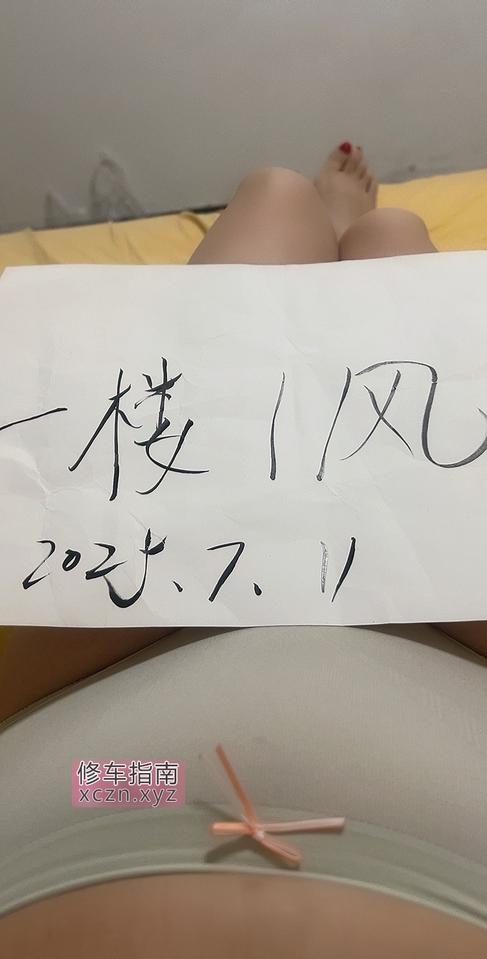 一楼 | | 风
2025.7.11
修车指南
xczn.xyz